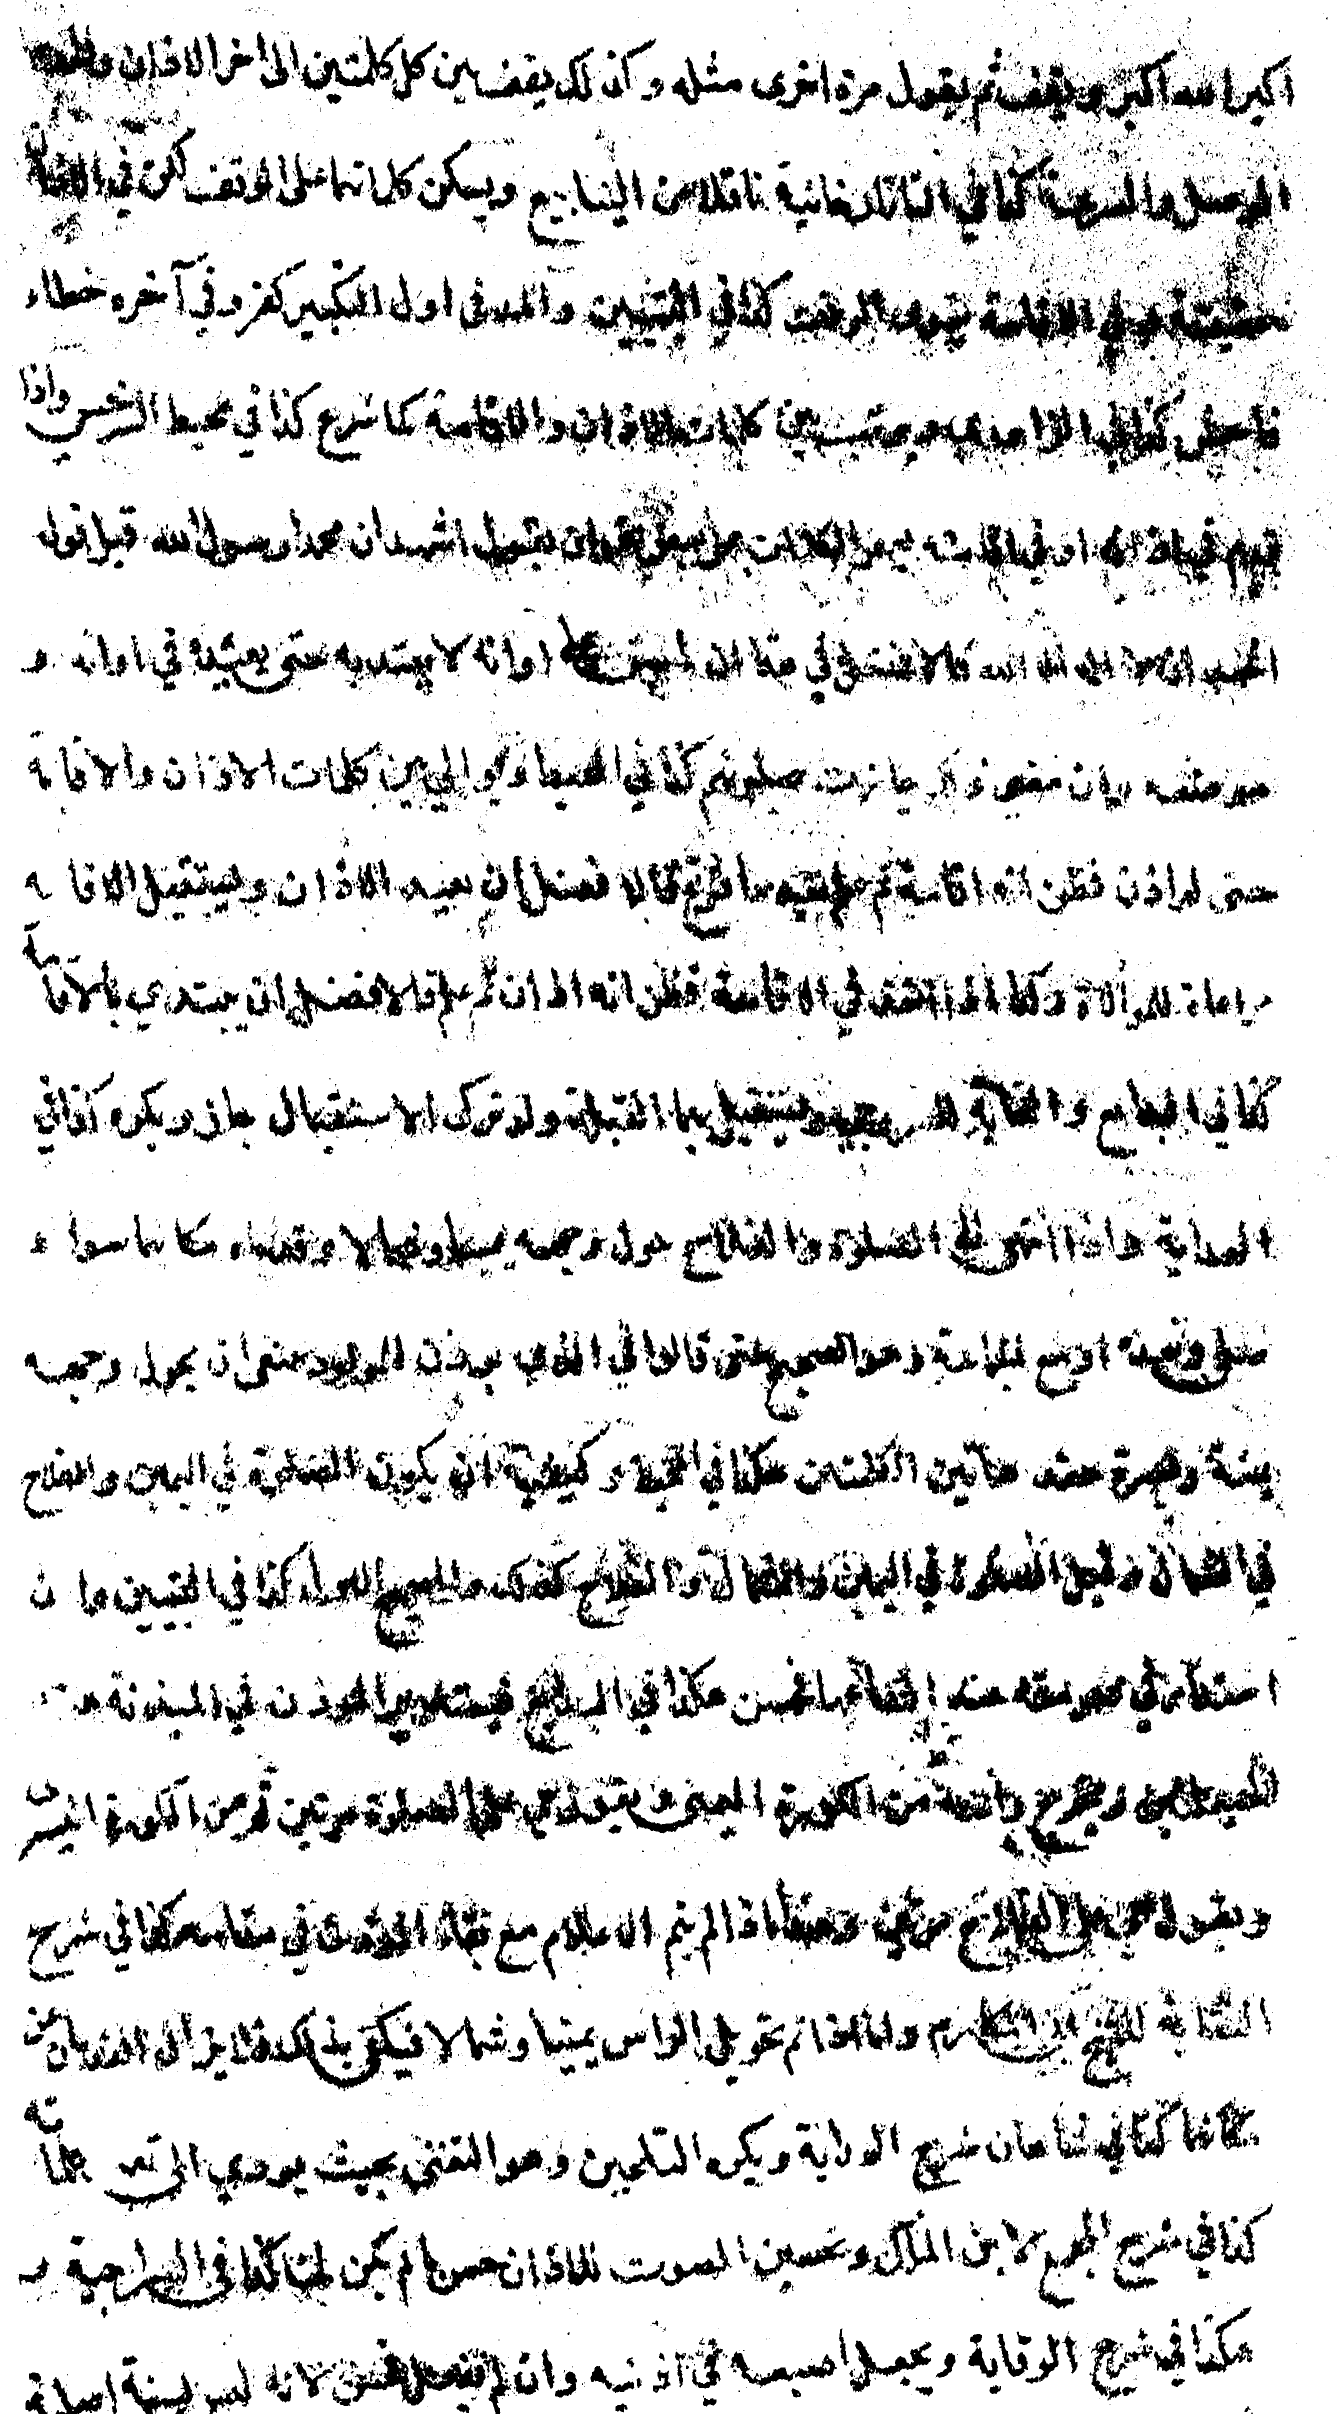 اكبر الله اكبر ويقف ثم يقول مرة اخرى مثله وكذلك يقف بين كل كلمتين الى اخر الاذان والحدر
الوصل والسرعة كذا في التاتارخانية ناقلا من الينابيع ويسكن كلماتهما على الوقف لكن في الاذان
حقيقة وفي الاقامة ينوي الوقف كذا في التبيين والمد في اول التكبير كفر وفي آخره خطاء
فاحش كذا في الزاهدي ويرتب بين كلمات الاذان والاقامة كما شرع كذا في محيط السرخسي واذا
قدم في اذانه او في اقامته بعض الكلمات على بعض نحو ان يقول اشهد ان محمدا رسول الله قبل قوله
اشهد ان لا اله الا الله فالافضل في هذا ان ما سبق على اوانه لا يعتد به حتى يعيده في اوانه و
موضعه وان مضى على ذلك جازت صلوتهم كذا في المحيط ويوالي بين كلمات الاذان والاقامة
حتى لو اذن فظن انه اقامة ثم علم بعد ما فرغ فالافضل ان يعيد الاذان ويستقبل الاقامة
مراعاة للموالاة وكذا اذا اخذ في الاقامة فظن انه اذان ثم علم فالافضل ان يبتدي بالاقامة
كذا في البدايع والغاية السروجية ويستقبل بهما القبلة ولو ترك الاستقبال جاز ويكره كذا في
الهداية فاذا انتهى الى الصلوة والفلاح حول وجهه يمينا وشمالا وقدماه مكانهما سواء
صلى وحده او مع الجماعة وهو الصحيح حتى قالوا في الذي يوذن للمولود ينبغي ان يحول وجهه
يمنة ويسرة عند هاتين الكلمتين هكذا في المحيط وكيفيته ان يكون الصلوة في اليمين والفلاح
في الشمال وقيل الصلوة في اليمين والشمال والفلاح كذلك والصحيح الاول كذا في التبيين وان
استدار في صومعته عند اتساعها فحسن هكذا في البدايع فيستدير الموذن في الميذنة عند
الحيعلتين ويخرج راسه من الكوة اليمنى ويقول حي على الصلوة مرتين ثم من الكوة اليسرى
ويقول حي على الفلاح مرتين وهذا اذا لم يتم الاعلام مع بقاء الموذن في مقامه هكذا في شرح
النقاية للشيخ ابي المكارم واما اذا تم تحويل الراس يمينا وشمالا فيكتفي بذلك فلا يزال القدمان عن
مكانهما كذا في شاهان شرح الوقاية ويكره التلحين وهو التغني بحيث يودي الى تغير كلماته
كذا في شرح المجمع لابن الملك وتحسين الصوت للاذان حسن ما لم يكن لحنا كذا في السراجية و
هكذا في شرح الوقاية ويجعل اصبعيه في اذنيه وان لم يفعل فحسن لانه ليس بسنة اصلية